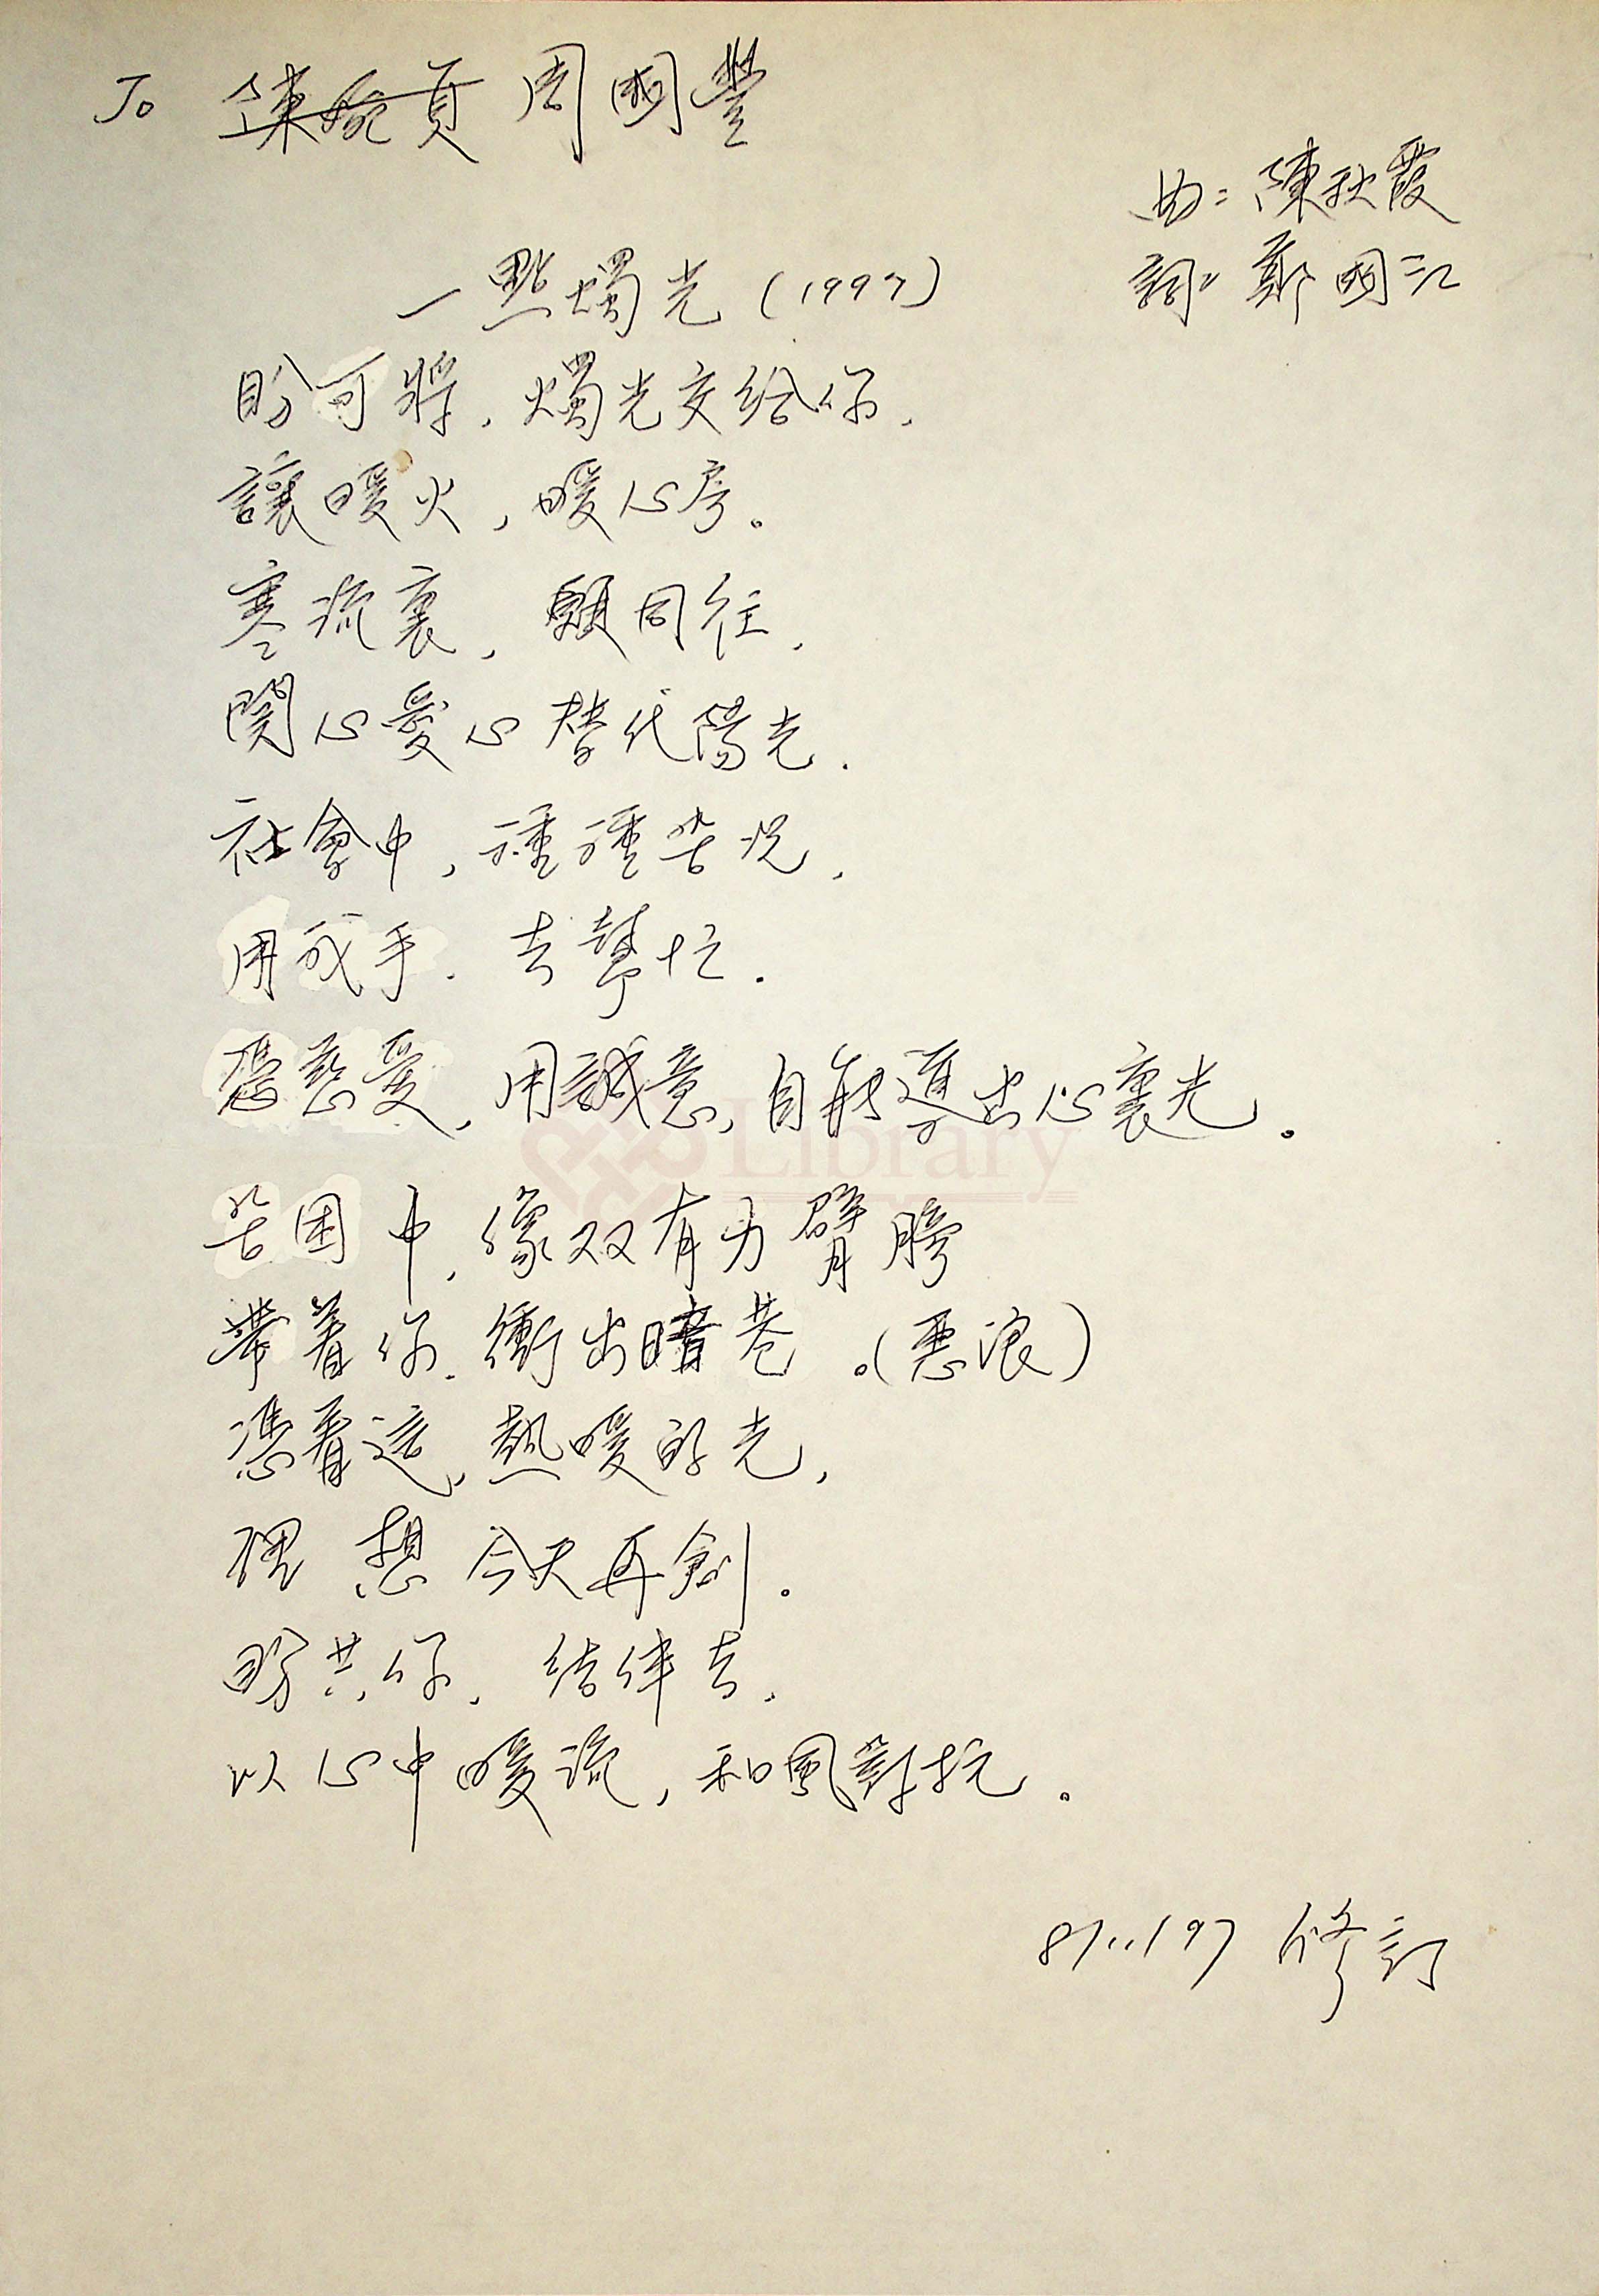 To 陳婉貞 周國豐
曲：陳秋霞
一點燭光（1997）
詞：鄭國江
盼可將，燭光交給你，
讓暖火，暖心房。
寒流裏，願同往，
関心愛心替代陽光．
社會中，種種苦況，
用我手．去幫忙．
憑慈愛，用誠意，自能導出心裏光。
Library
苦困中，像双有力臂膀
帶着你．衝出暗巷。（惡浪）
憑着這，熱暖的光，
理想今天再創。
盼共你，結伴去，
以心中暖流，和風對抗。
修訂